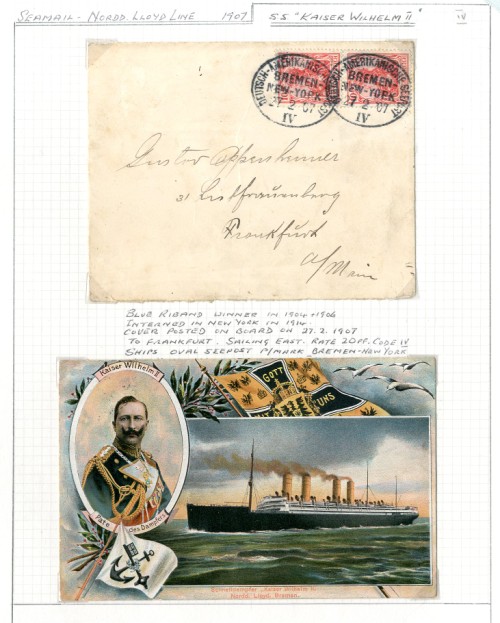 SEAMAIL - NORDD. LLOYD LINE 1907 SS "KAISER WILHELM II" IV
DEUTSCH-AMERIKANISCHE SEEPOST
BREMEN-
NEW-YORK
27 2 07
IV
DEUTSCH-AMERIKANISCHE SEEPOST
BREMEN-
NEW-YORK
27 2 07
IV
Gustav Oppenheimer
31
Frankfurt
a/Main
BLUE RIBAND WINNER IN 1904-1906
INTERNED IN NEW YORK IN 1914.
COVER POSTED ON BOARD ON 27.2.1907
TO FRANKFURT. SAILING EAST. RATE 20PF. CODE IV
SHIPS OVAL SEEPOST P/MARK BREMEN-NEW YORK
Kaiser Wilhelm II
GOTT
UNS
Pate des Dampfers
Schnelldampfer „Kaiser Wilhelm II“
Nordd. Lloyd, Bremen.